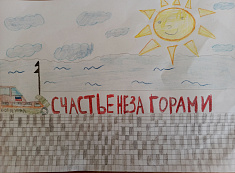 СЧАСТЬЕ НЕ ЗА ГОРАМИ